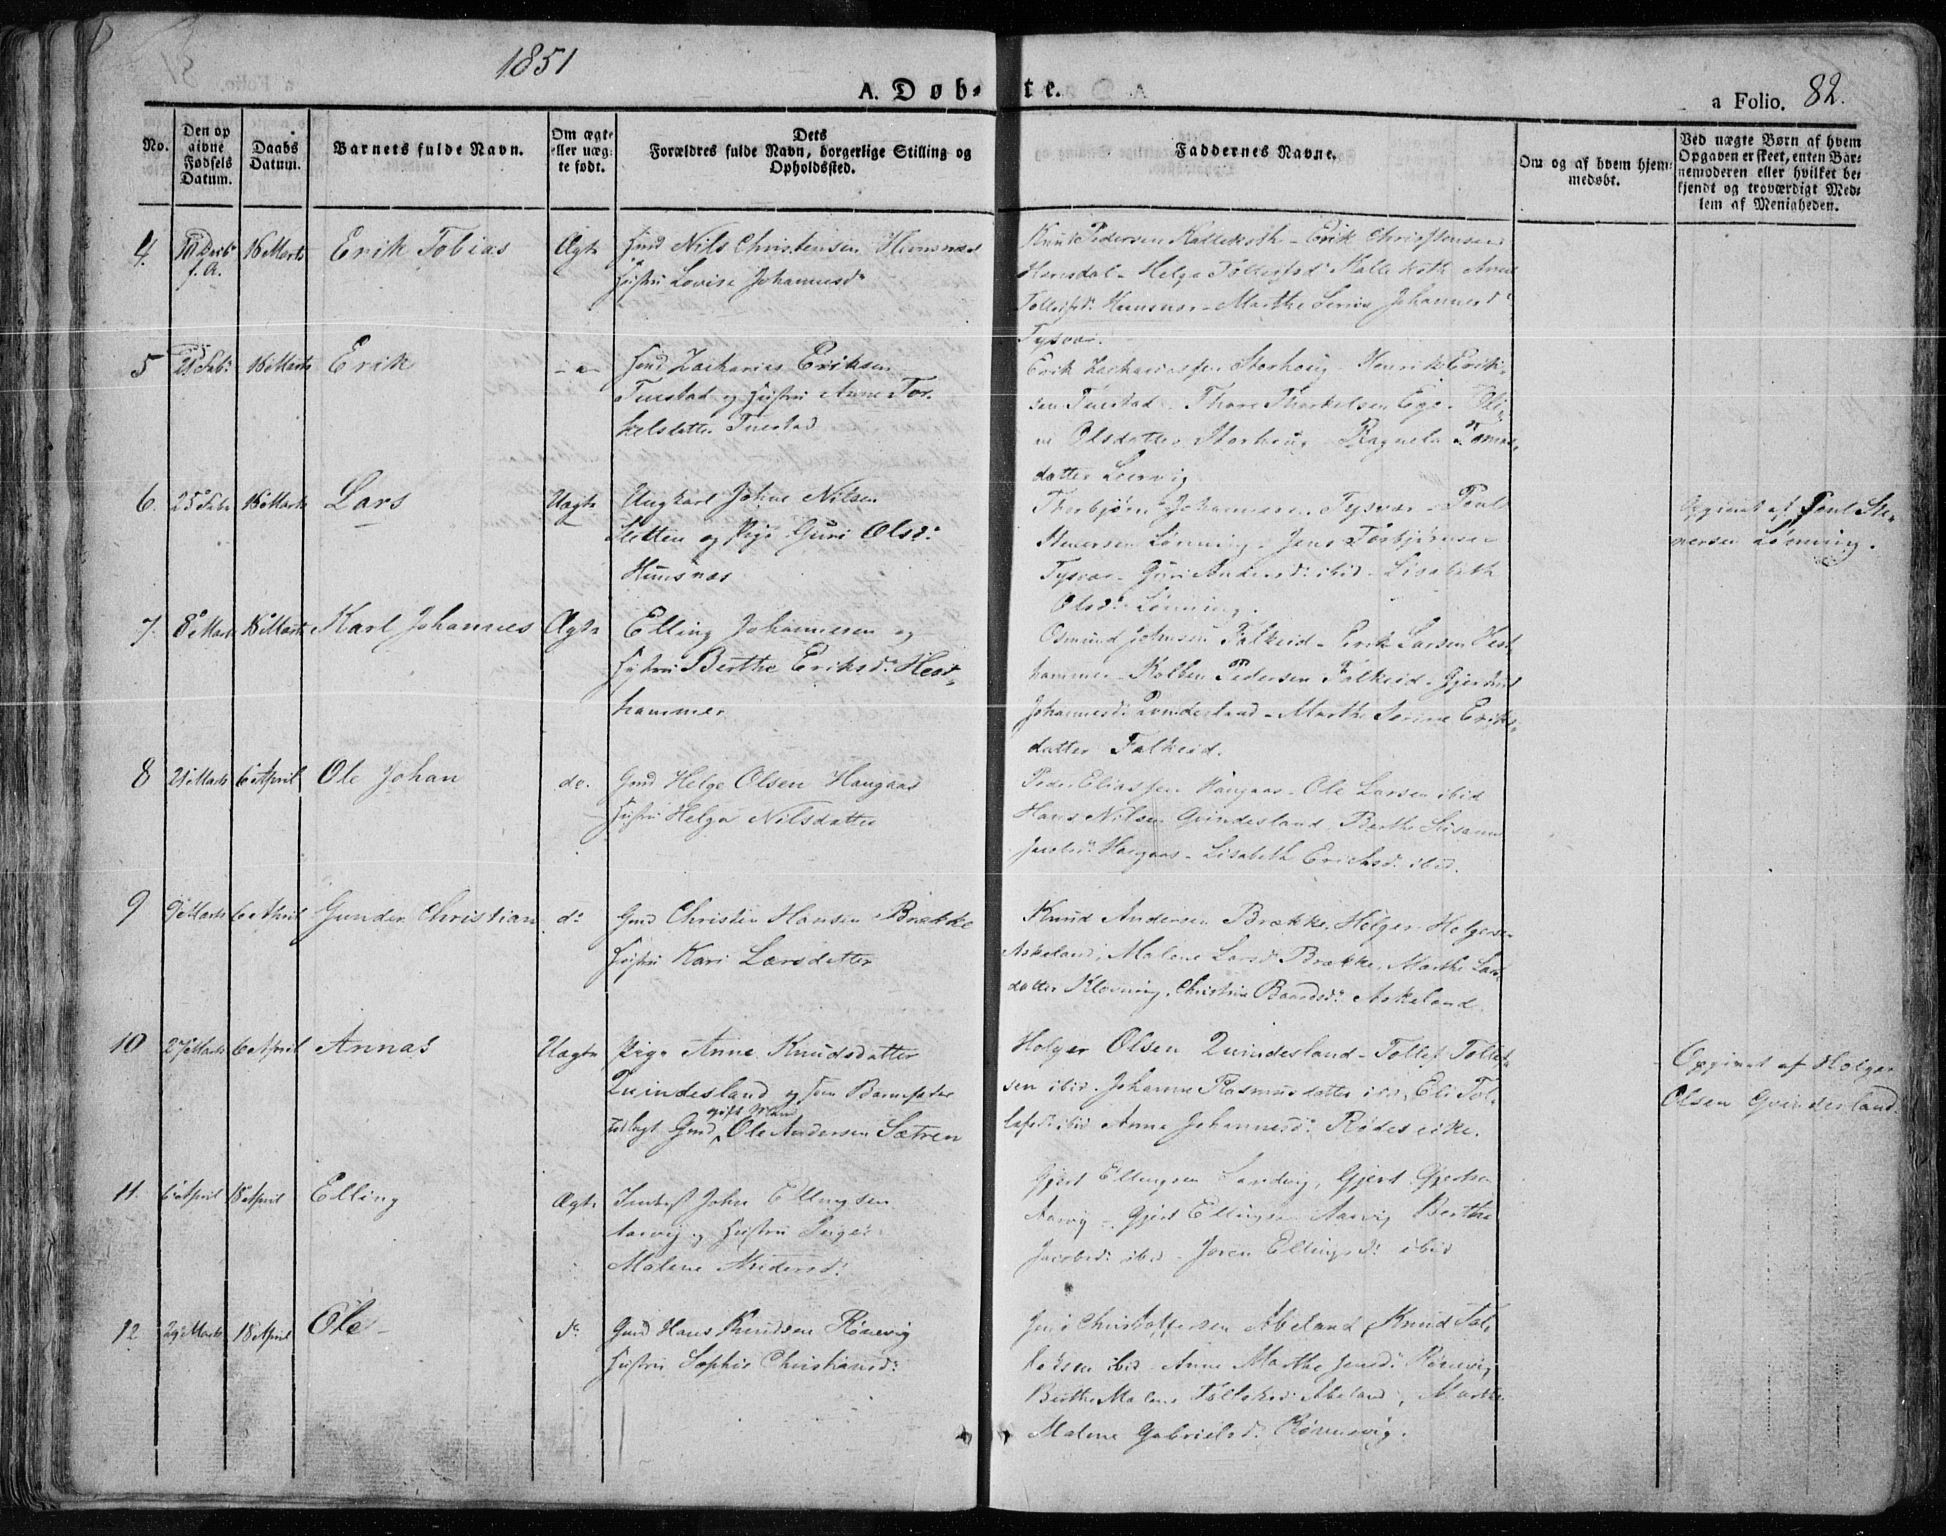 1851
A. Døb- te.
a Folio. 82.
No.
Den op
givne
Fødsels
Datum.
Daabs
Datum.
Barnets fulde Navn.
Om ægte
eller uæg-
te født.
Dets
Forældres fulde Navn, borgerlige Stilling og
Opholdssted.
Faddernes Navne.
Om og af hvem hjem-
medøbt.
Ved uægte Børn af hvem
Opgaven er skeet, enten Bar-
nemoderen eller hvilket be-
kjendt og troværdigt Med-
lem af Menigheden.
4. 16 Marts Erik Tobias Ægte Nils Christensen Hunsnæs
Hustru Lovise Johannesd:
Knud Pedersen Kallekoth - Erik Christensen
Helga Kallekoth Anne
Hunsnæs - Marthe Johannesd:
Tysvær.
5 21 Feb: 16 Marts Erik Zacharias Eriksen
Tuestad og Hustru Anne Tor-
kelsdatter Tuestad
Erik Zachariassen Storhoug - Henrik Erik-
sen Tuestad. Thore Thorkelsen Ege.
Olsdatter Storhoug Ragnela
datter Leervig
6. 25 Febr 16 Marts Lars Uægte Ungkarl Johne Nilsen
Sletten og Pige Guri Olsd:
Hunsnæs
Thorbjørn Johannesen Tysvær - Poul
Stenersen Lønning. Jens Torbjørnsen
Tysvær - Guri Andersd: ibid - Lisabeth
Olsd: Lønning.
Opgivet af Poul Ste-
nersen Lønning.
7. 8 Marts 16 Marts Karl Johannes Ægte Elling Johannesen og
Hustru Berthe Eriksd: Hest-
hammer
Osmund Johnsen Falkeid - Erik Larsen Hest
hammer - Kolben Pedersen Falkeid - Gjertrud
Johannesd: Qvindesland - Marthe Serine Eriks-
datter Falkeid.
8 21 Marts 6 April Ole Johan do. Gmd Helge Olsen Haugaas
Hustru Helga Nilsdatter
Peder Eliassen Haugaas - Ole Larsen ibid
Hans Nilsen Qvindesland Berthe Susanne
Jacobsd: Haugaas - Lisabeth Erichsd: ibid.
9 9 Marts 6 April Gunder Christian do Gmd Christen Hansen Brække
Hustru Kari Larsdatter
Knud Andersen Brække, Helger Holgersen
Askeland, Malene Larsd: Brække, Marthe Lars
datter Klovning, Christine Baardsd: Askeland.
10 27 Marts 6 April Annas Uægte Pige Anne Knudsdatter
Quindesland og som Barnefader
udlagt Gmd gift Mand Ole Andersen Sætren
Holger Olsen Quindesland - Tollef Tollef-
sen ibid. Johanne Rasmusdatter ibid, Eli Tol-
lefsd: ibid Anna Johannesd: Rødeseike.
Opgivet af Holger
Olsen Qvindesland.
11. 6 April 18 April Elling Ægte John Ellingsen
Aarvig og Hustru
Malene Andersd:
Gjert Ellingsen Sandvig, Gjert Gjertsen
Aarvig - Gjert Ellingsen Aarvig Berthe
Jacobsd: ibid - Joren Ellingsd: ibid
12 29 Marts 18 April Ole do Gmd Hans Knudsen Rønevig
Hustru Sophie Christiansd:
Jens Christoffersen Abeland, Knud Tol-
lefsen ibid - Anne Marthe Jensd: Rønevig
Berthe Malene Abeland, Marthe
Malene Gabrielsd: Rønnevig.